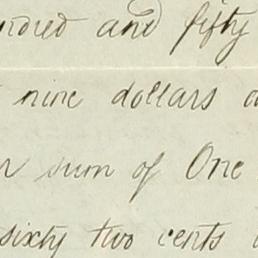 and fifty
nine dollars
sum of One
sixty two cents